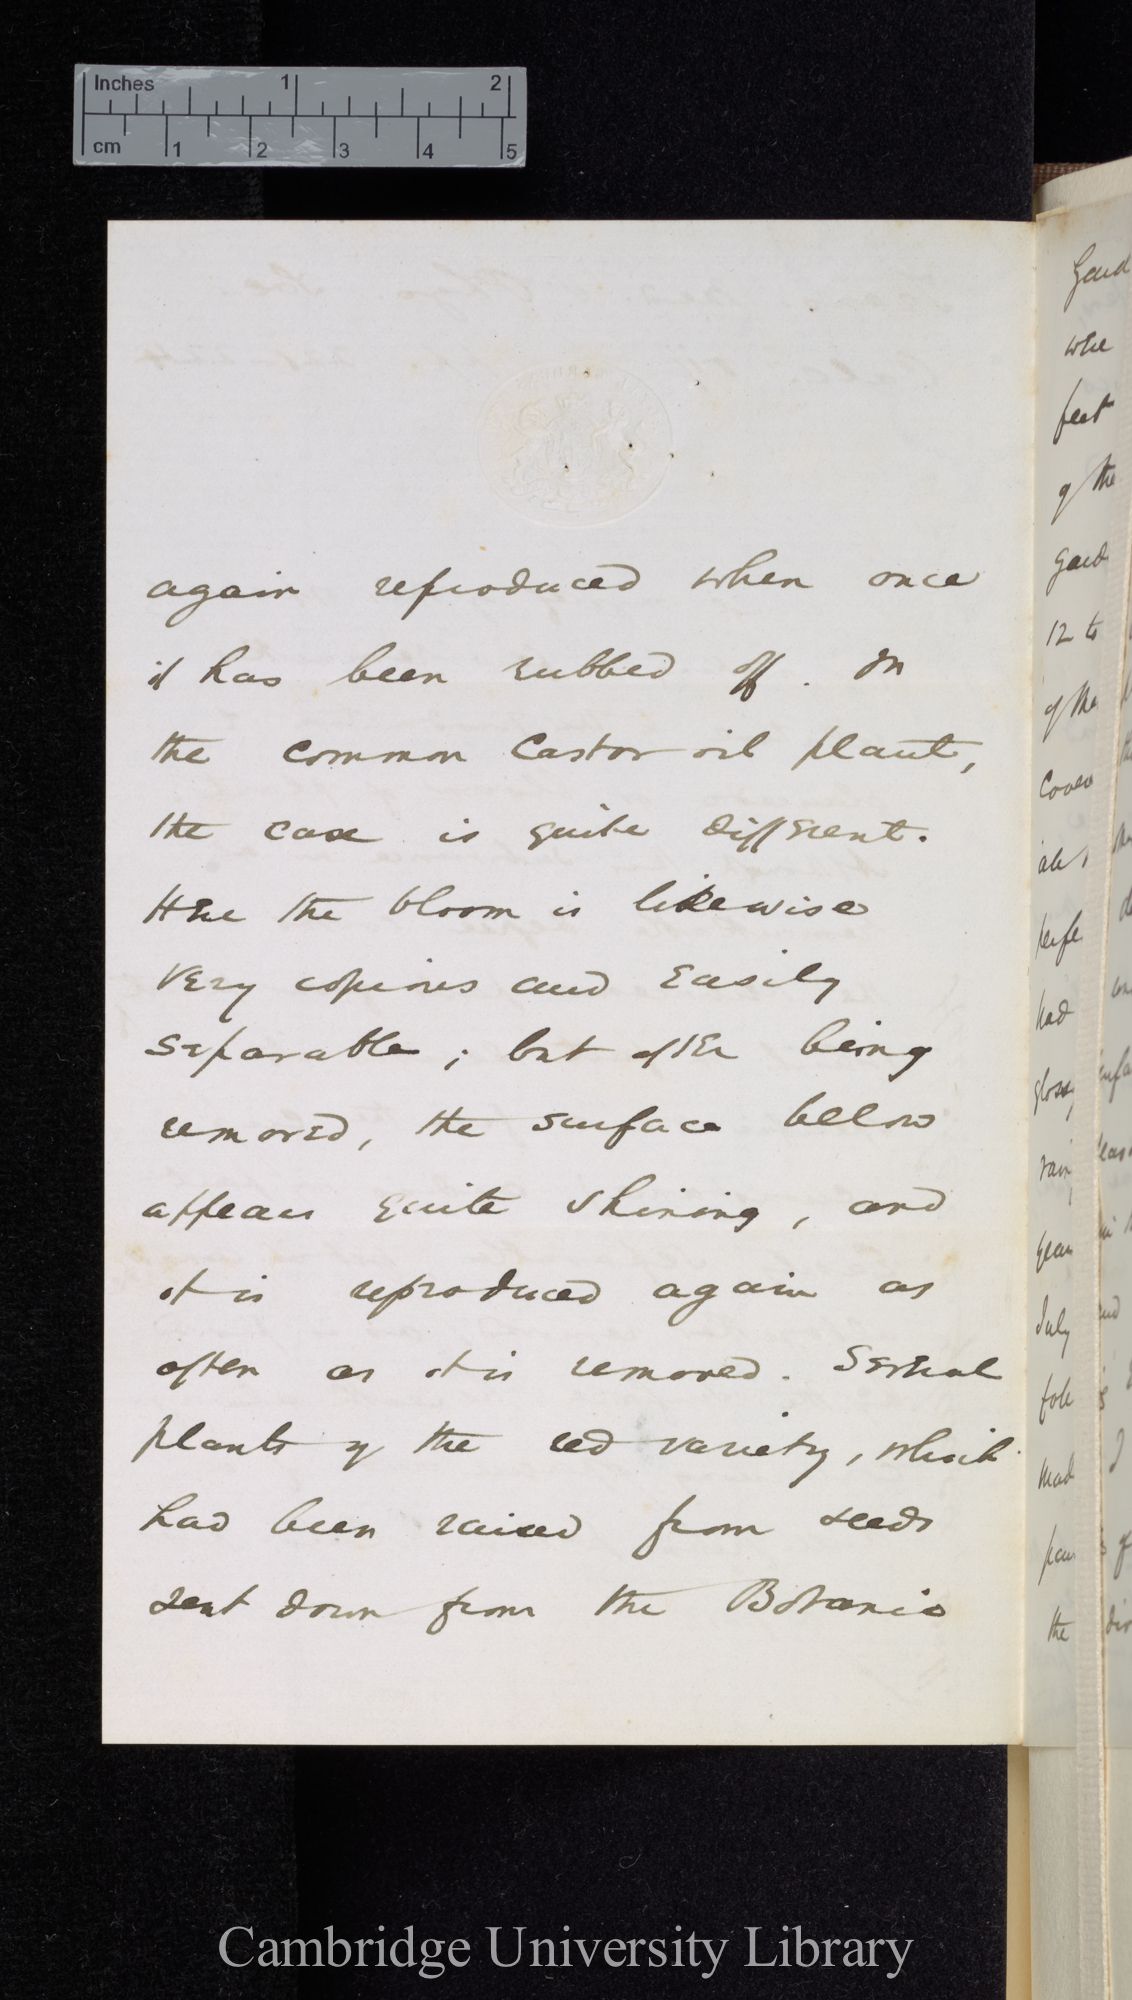 Inches 1 2
cm 1 2 3 4 5
again reproduced when once
it has been rubbed off. In
the common Castor oil plant,
the case is quite different.
Here the bloom is likewise
very copious and easily
separable; but after being
removed, the surface below
appears quite shining, and
it is reproduced again as
often as it is removed. Several
plants of the red variety, which
had been raised from seeds
sent down from the Botanic
of the
12 to
of the
had
July
the
Cambridge University Library